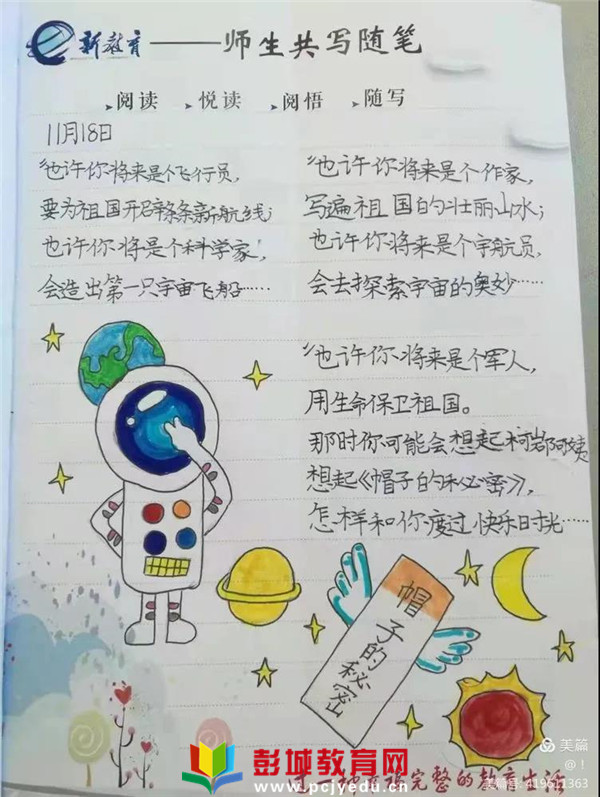 新教育——师生共写随笔
阅读 悦读 阅悟 随写
11月18日
"也许你将来是个飞行员，
要为祖国开辟条条新航线；
也许你将是个科学家，
会造出第一只宇宙飞船……
"也许你将来是个作家，
写遍祖国的壮丽山水；
也许你将来是个宇航员，
会去探索宇宙的奥妙……
"也许你将来是个军人，
用生命保卫祖国。
那时你可能会想起柯岩阿姨
想起《帽子的秘密》，
怎样和你度过快乐时光……
帽子的秘密
美篇
@！
美篇号:419611363
彭城教育网
www.pcjyedu.cn
完整的教育生活